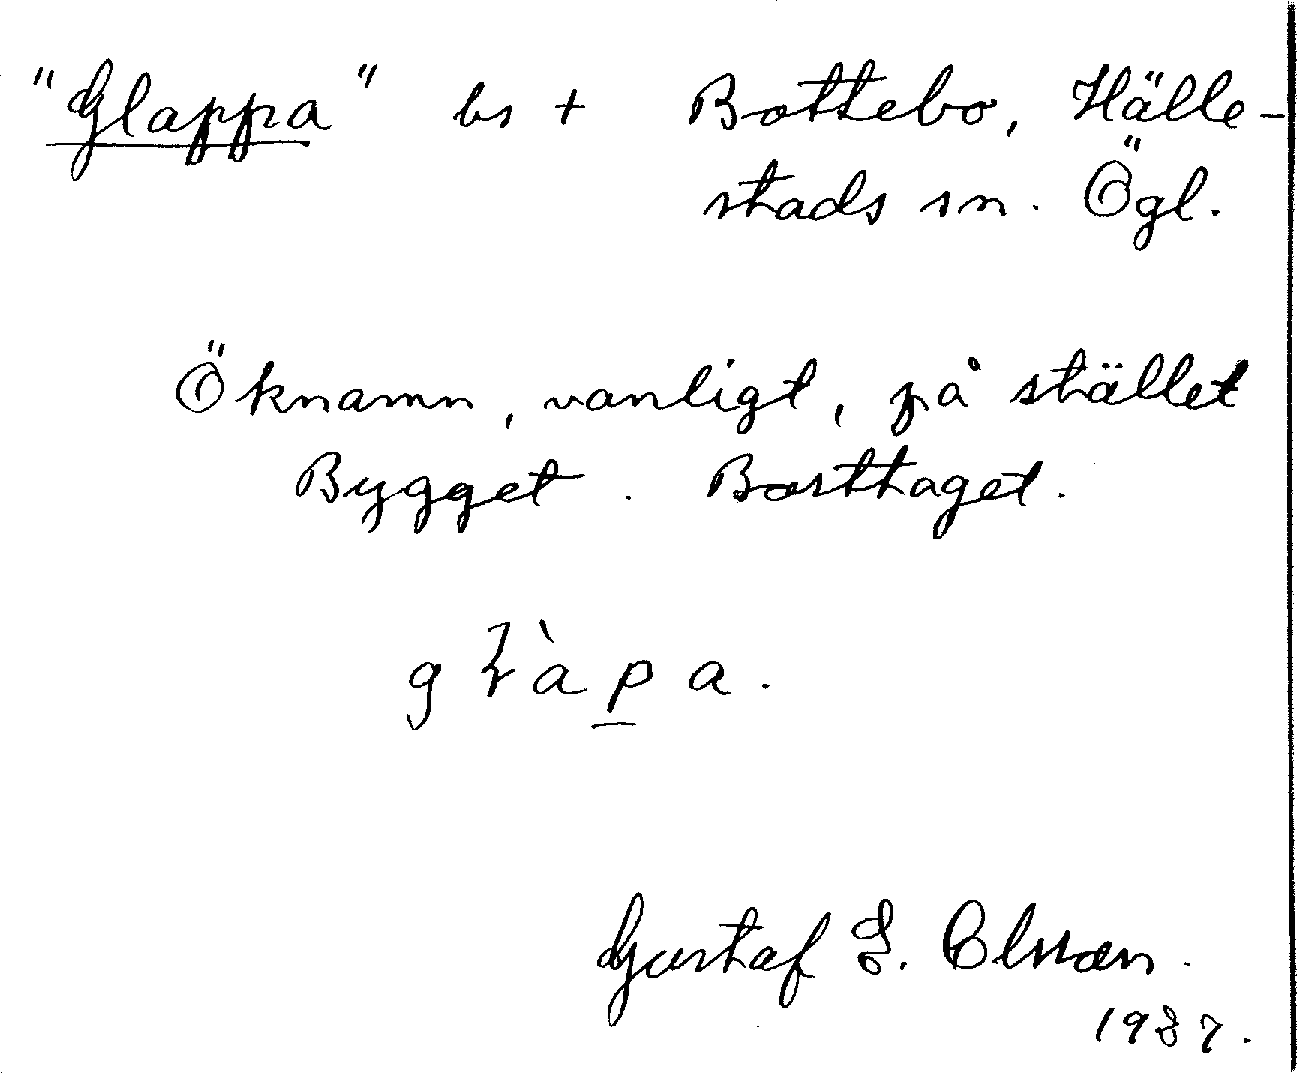 "Glappa" bs + Bottebo, Hälle-
stads sn. Ögl.
Öknamn, vanligt, på stället
Bygget. Borttaget.
gɫàpa.
Gustaf E. Olsson.
1937.